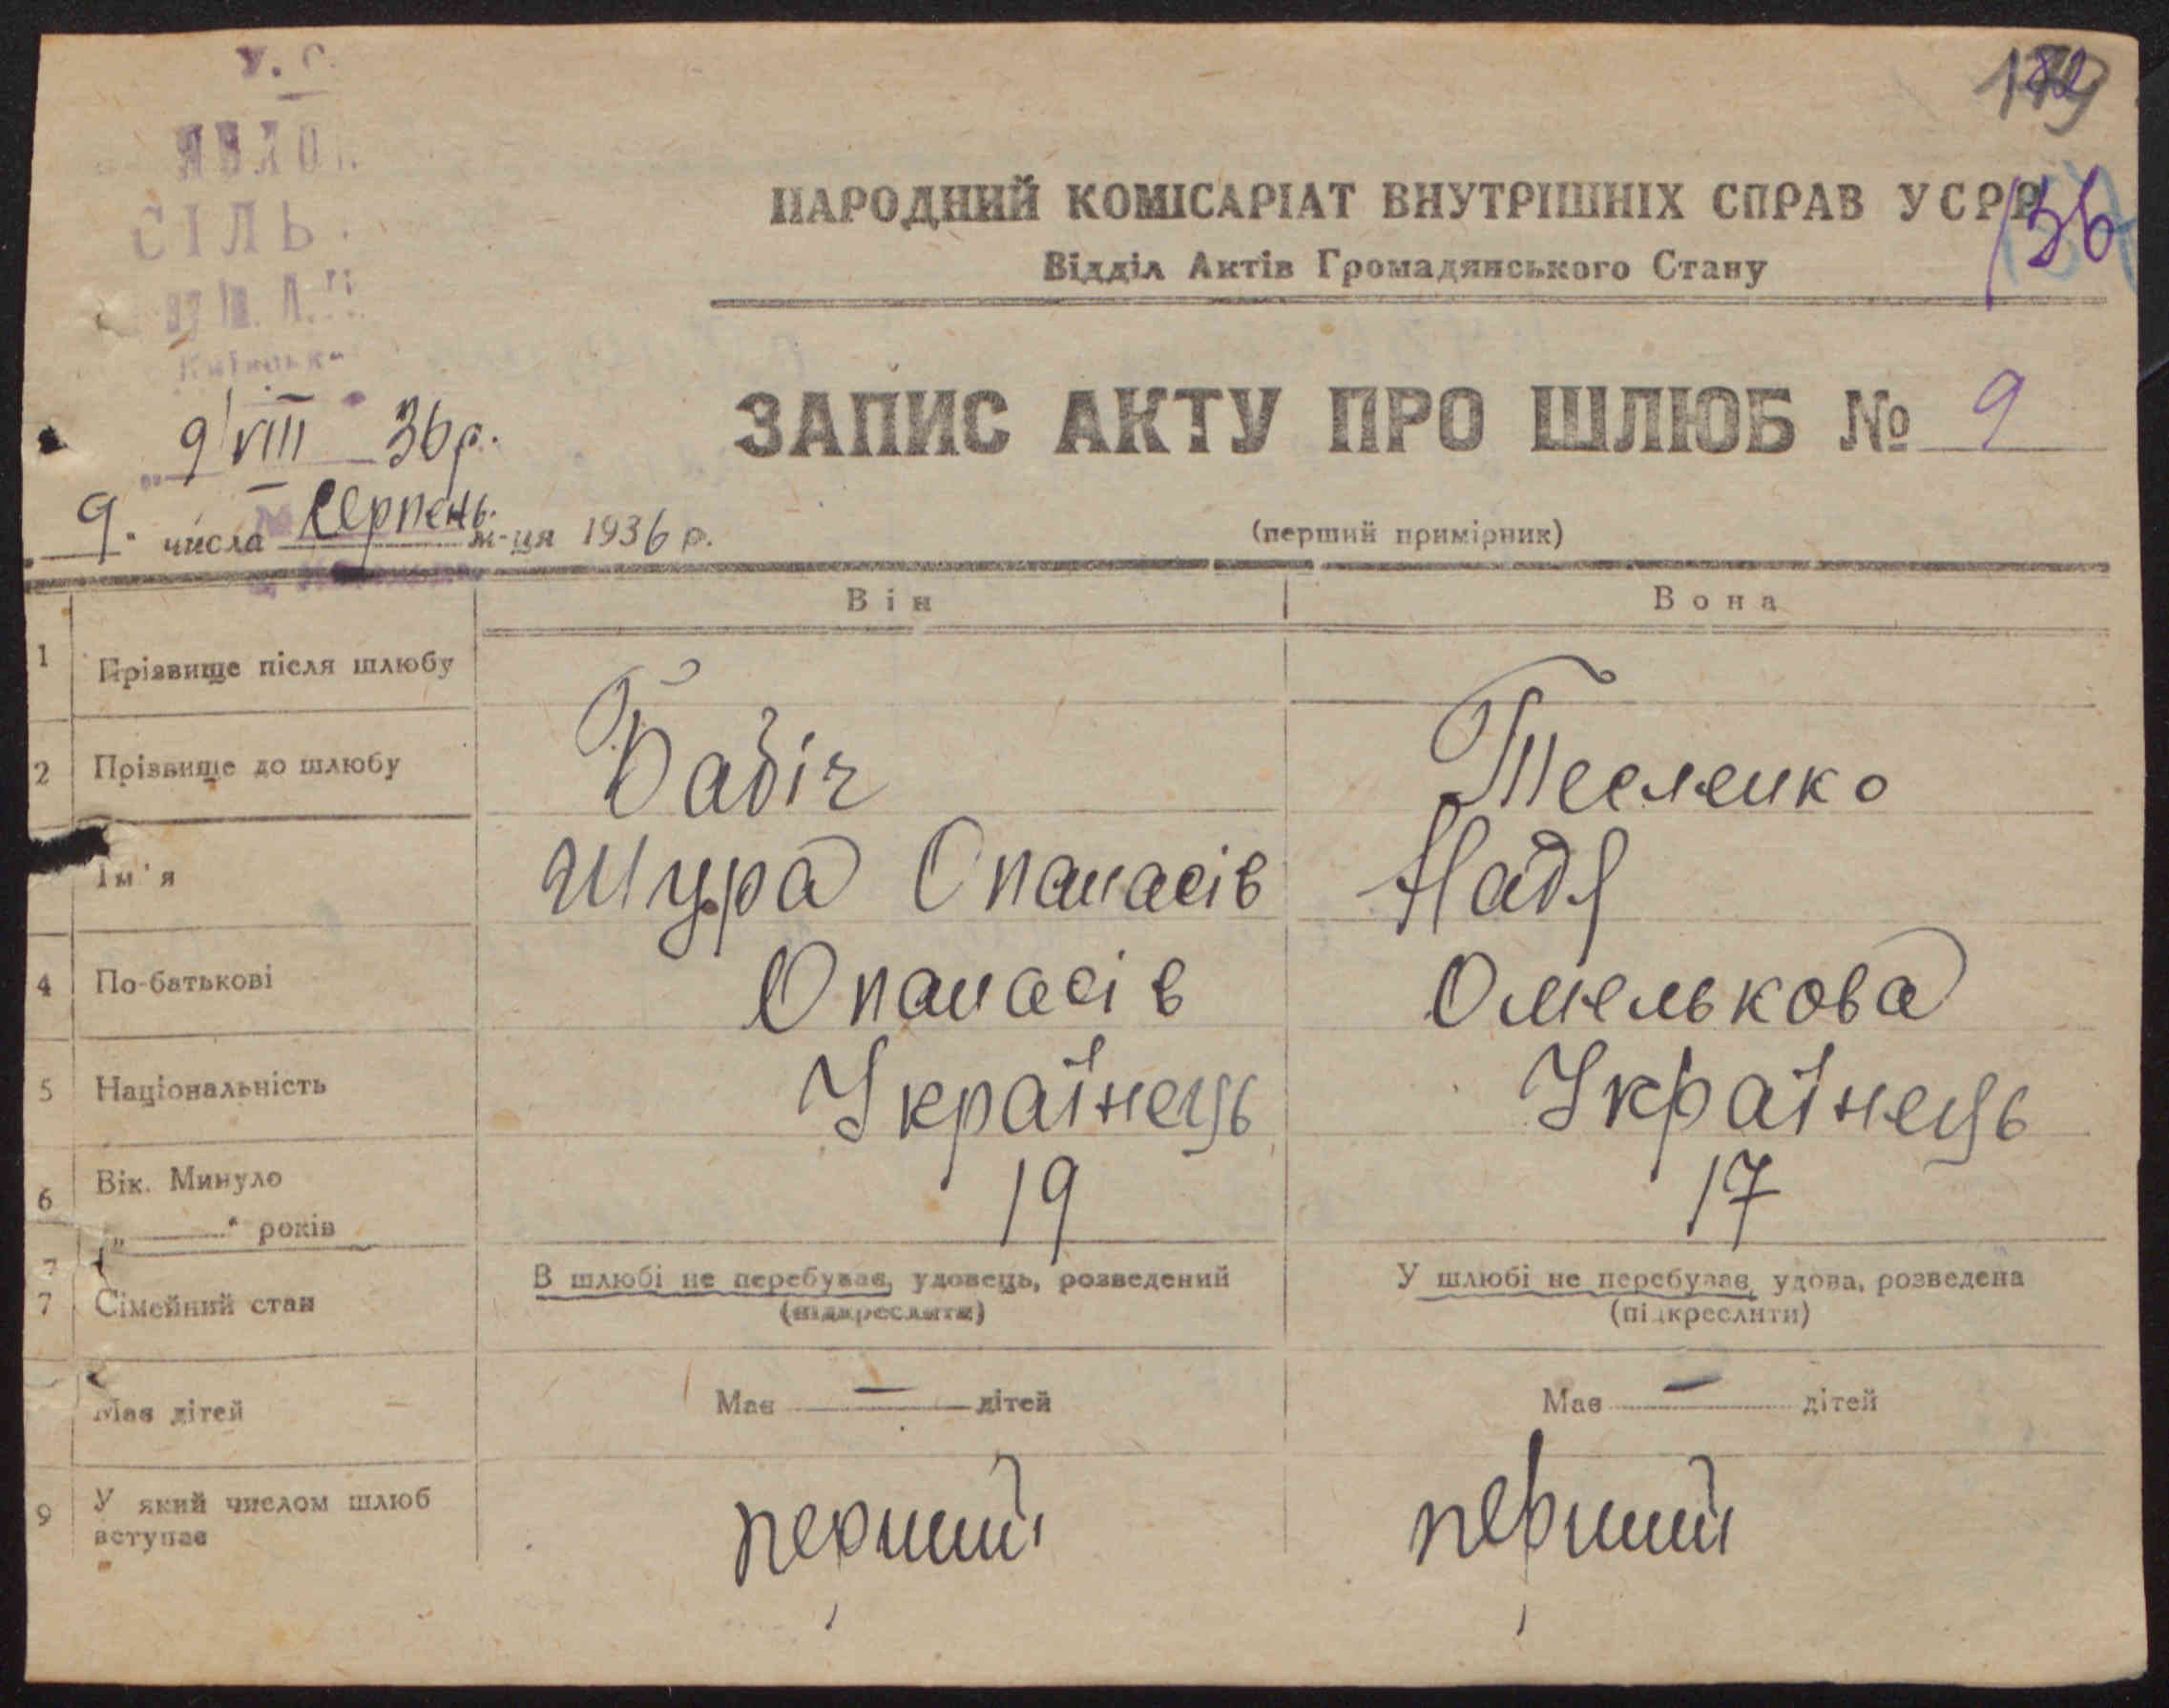 У. С.
СІЛЬ
182
179
136
НАРОДНИЙ КОМІСАРІАТ ВНУТРІШНІХ СПРАВ УСРР
Відділ Актів Громадянського Стану
ЗАПИС АКТУ ПРО ШЛЮБ № 9
9/VIII 36 р.
9. числа Серпень м-ця 1936 р.
(перший примірник)
Він Вона
1 Прізвище після шлюбу
2 Прізвище до шлюбу Бабіч Тесленко
Ім'я Шура Опанасів Надя
4 По-батькові Опанасів Омелькова
5 Національність Українець Українець
6 Вік. Минуло
„ " років 19 17
7
7 Сімейний стан В шлюбі не перебуває, удовець, розведений У шлюбі не перебуває, удова, розведена
(підкреслити) (підкреслити)
Має дітей Має — дітей Має — дітей
9 У який числом шлюб
вступає перший перший